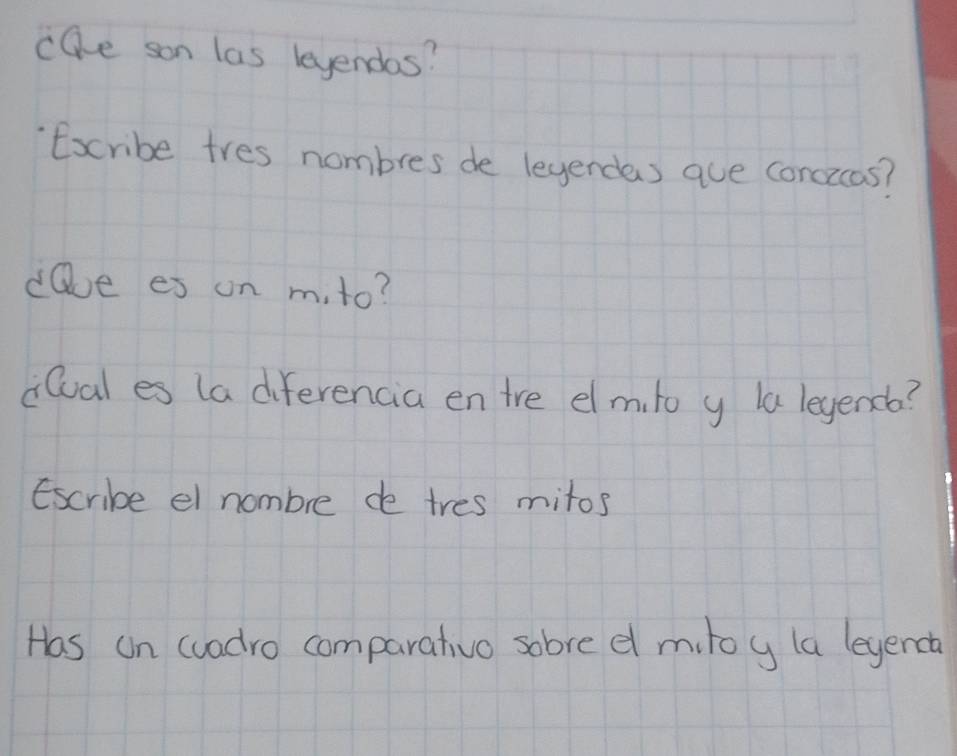 ¿Que son las leyendas?
·Escribe tres nombres de leyendas que conozcas?
¿Que es un mito?
¿Cual es la diferencia entre el mito y la leyenda?
Escribe el nombre de tres mitos
Has un cuadro comparativo sobre el mito y la leyenda